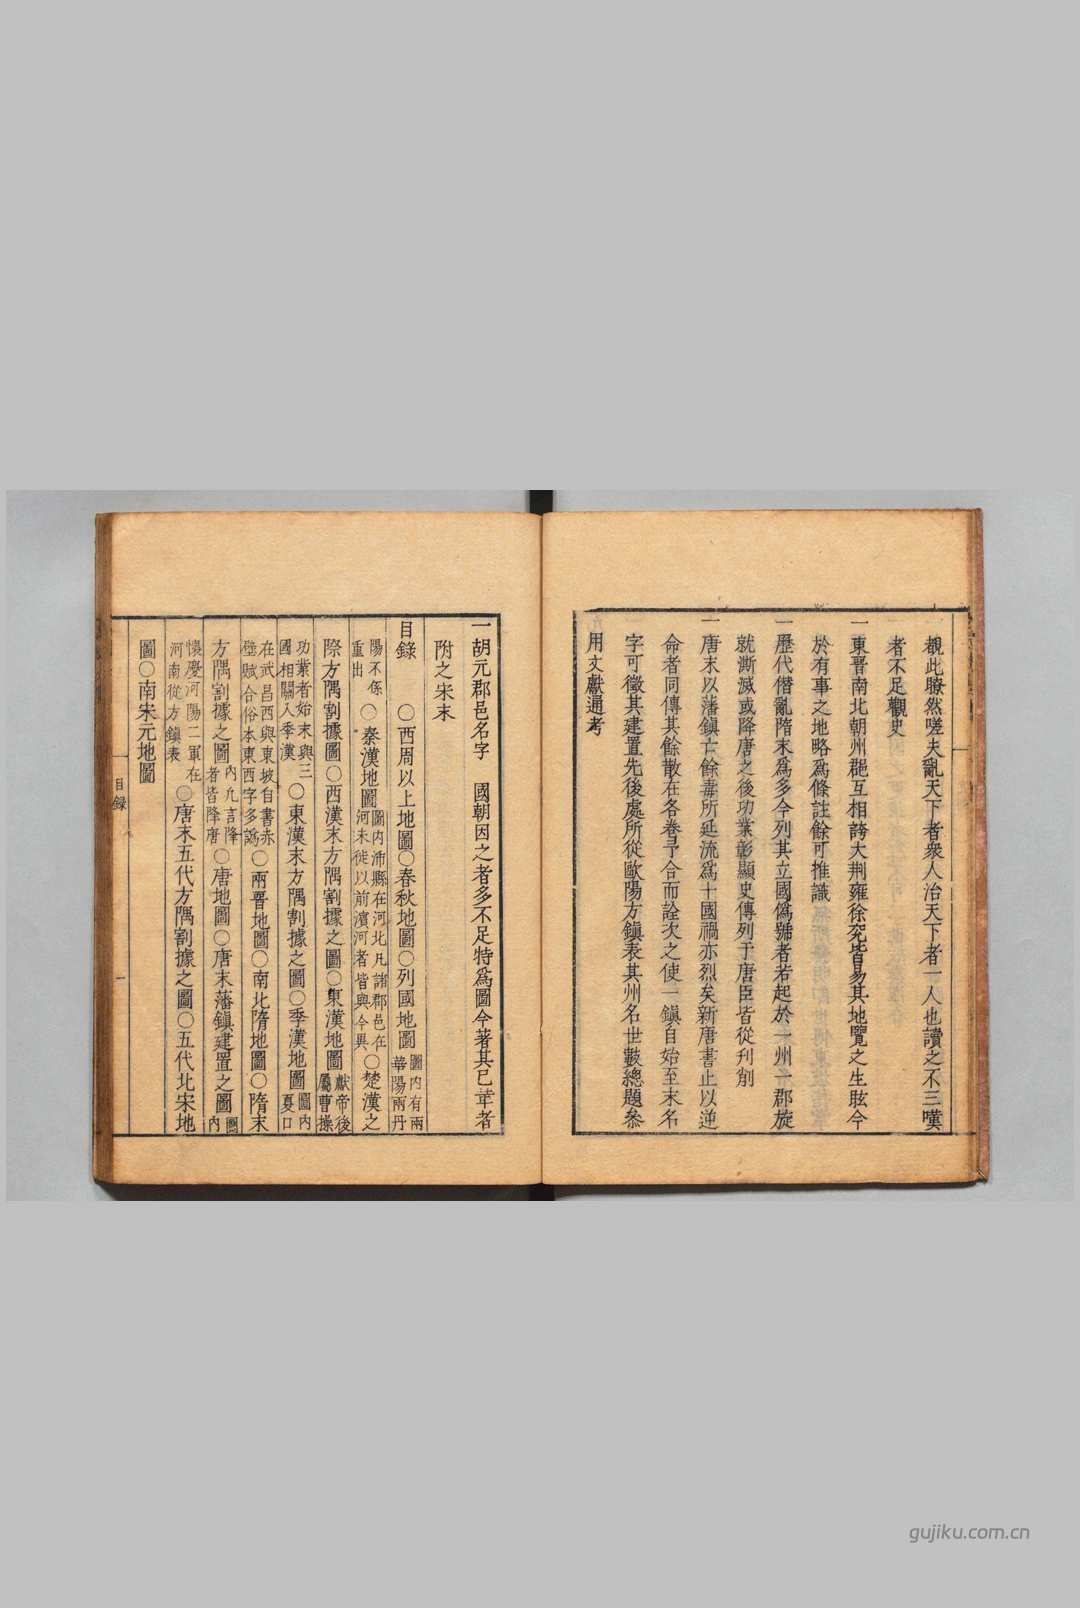 觀此瞭然嗟夫亂天下者衆人治天下者一人也讀之不三嘆
者不足觀史
一東晉南北朝州郡互相誇大荆雍徐兖皆易其地覽之生眩今
於有事之地略爲條註餘可推識
一歷代僭亂隋末爲多今列其立國僞號者若起於一州一郡旋
就澌滅或降唐之後功業彰顯史傳列于唐臣皆從刋削
一唐末以藩鎭亡餘毒所延流爲十國禍亦烈矣新唐書止以逆
命者同傳其餘散在各卷予合而詮次之使一鎭自始至末名
字可徵其建置先後處所從歐陽方鎭表其州名世數總題叅
用文獻通考
一胡元郡邑名字　國朝因之者多不足特爲圖今著其已葉者
附之宋末
目錄　〇西周以上地圖〇春秋地圖〇列國地圖圖内有兩華陽兩丹
陽不係重出〇秦漢地圖圖内沛縣在河北凡諸郡邑在河未徙以前濵河者皆與今異〇楚漢之
際方隅割據圖〇西漢末方隅割據之圖〇東漢地圖獻帝後屬曹操
功業者始末與三國相關人季漢〇東漢末方隅割據之圖〇季漢地圖圖内夏口
在武昌西與東坡自書赤壁賦合俗本東西字多譌〇兩晉地圖〇南北隋地圖〇隋末
方隅割據之圖内凡言降者皆降唐〇唐地圖〇唐末藩鎭建置之圖圖内
懷慶河陽二軍在河南從方鎭表〇唐末五代方隅割據之圖〇五代北宋地
圖〇南宋元地圖
目錄
一
gujiku.com.cn